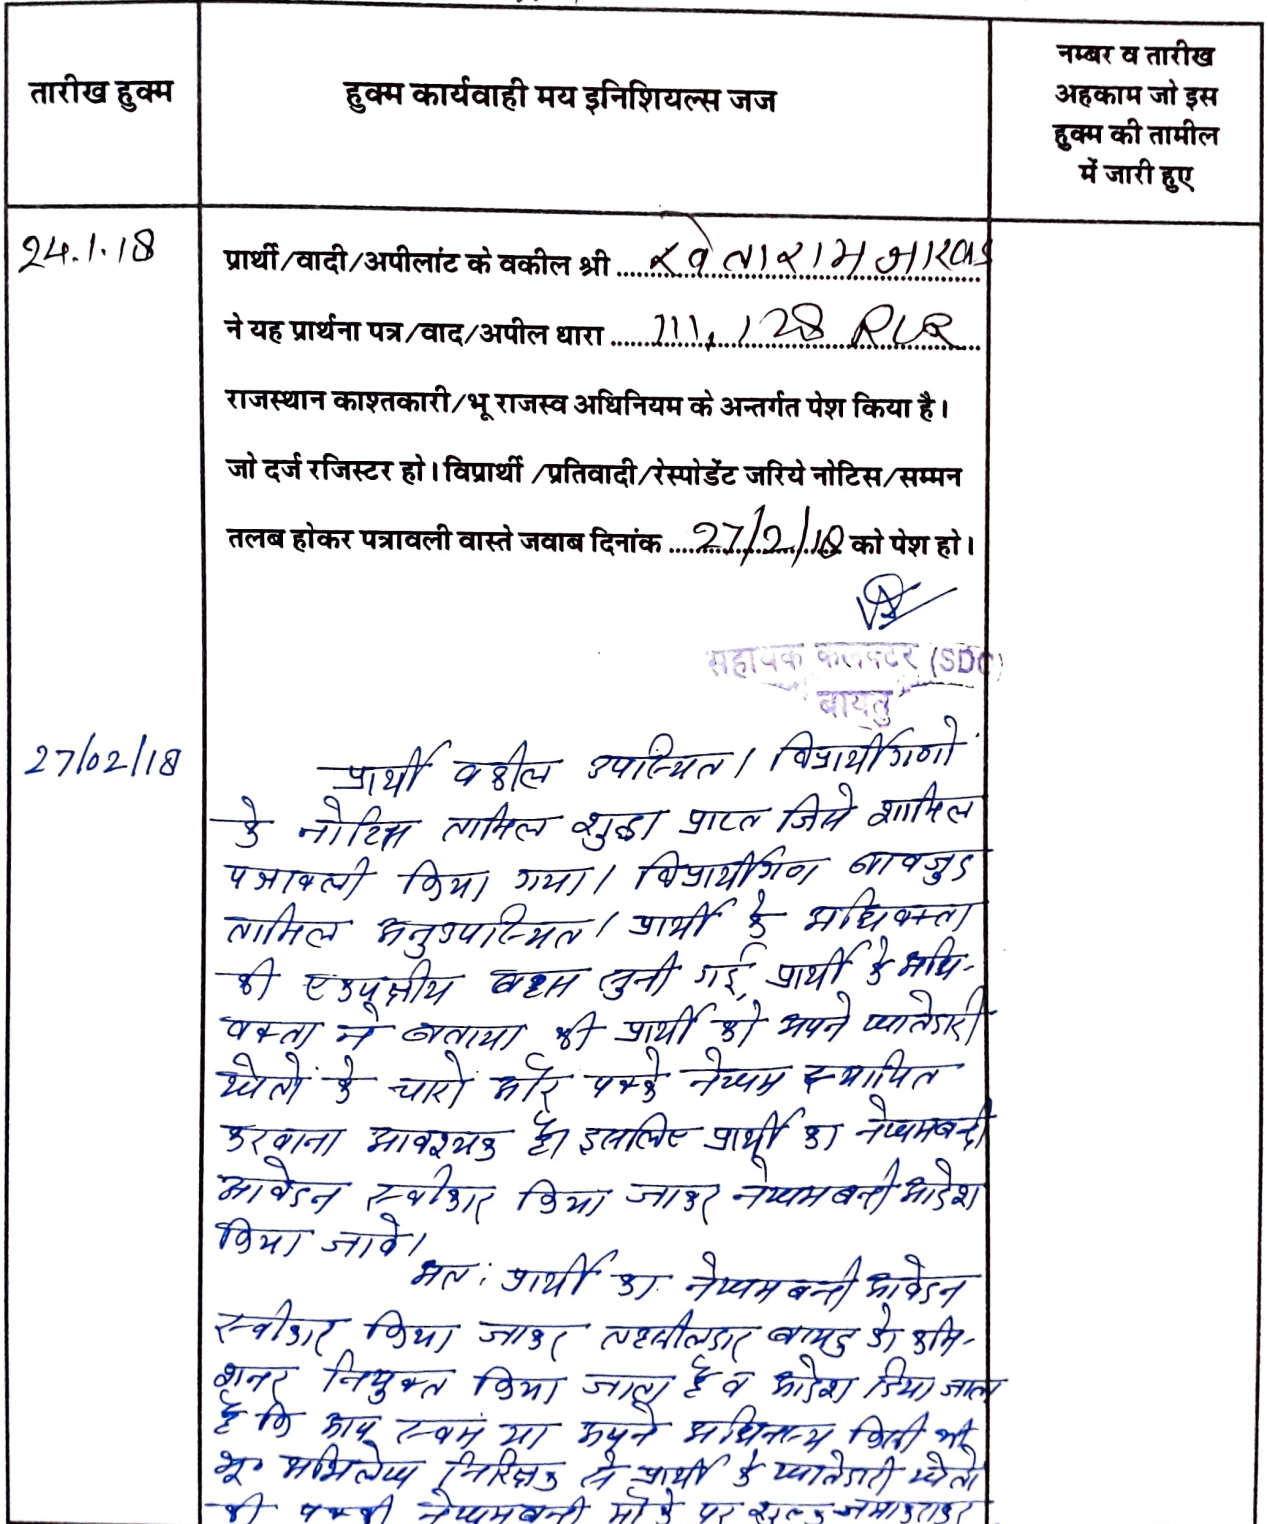 तारीख हुक्म
हुक्म कार्यवाही मय इनिशियल्स जज
नम्बर व तारीख
अहकाम जो इस
हुक्म की तामील
में जारी हुए
24.1.18
प्रार्थी/वादी/अपीलांट के वकील श्री ......
ने यह प्रार्थना पत्र/वाद/अपील धारा ...... 111, 128 RLR
राजस्थान काश्तकारी/भू राजस्व अधिनियम के अन्तर्गत पेश किया है।
जो दर्ज रजिस्टर हो। विप्रार्थी /प्रतिवादी/रेस्पोडेंट जरिये नोटिस/सम्मन
तलब होकर पत्रावली वास्ते जवाब दिनांक ...27/2/18 को पेश हो।
सहायक कलक्टर (SDO)
बायतु
27/02/18
प्रार्थी वकील उपस्थित। विप्रार्थीगणों
के नोटिस तामिल शुदा प्राप्त जिसे शामिल
पत्रावली किया गया। विप्रार्थीगण बावजुद
तामिल अनुउपस्थित। प्रार्थी के अधिवक्ता
की एकपक्षीय बहस सुनी गई, प्रार्थी के अधि-
वक्ता ने बताया की प्रार्थी को अपने खातेदारी
खेतों के चारों ओर पक्के नेखम स्थापित
करवाना आवश्यक है। इसलिए प्रार्थी का नेखमबन्दी
आवेदन स्वीकार किया जाकर नेखमबन्दी आदेश
किया जावे।
अतः प्रार्थी का नेखमबन्दी आवेदन
स्वीकार किया जाकर तहसीलदार बायतु को कमि-
शनर नियुक्त किया जाता है व आदेश दिया जाता
है कि आप स्वयं या अपने अधिनस्थ किसी भी
भू० अभिलेख निरिक्षक से प्रार्थी के खातेदारी खेतों
की पक्की नेखमबन्दी मौके पर शुल्क जमा कराकर